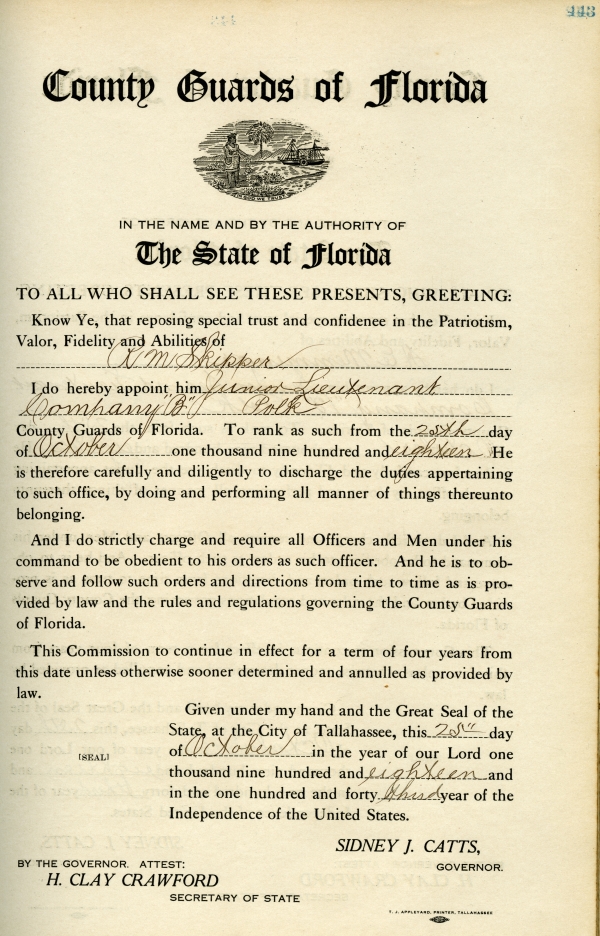 443
County Guards of Florida
IN GOD WE TRUST
IN THE NAME AND BY THE AUTHORITY OF
The State of Florida
TO ALL WHO SHALL SEE THESE PRESENTS, GREETING:
Know Ye, that reposing special trust and confidenee in the Patriotism,
Valor, Fidelity and Abilities of
M Skipper
I do hereby appoint him Junior Lieutenant
Company "B" Polk
County Guards of Florida. To rank as such from the 25th day
of October one thousand nine hundred and eighteen He
is therefore carefully and diligently to discharge the duties appertaining
to such office, by doing and performing all manner of things thereunto
belonging.
And I do strictly charge and require all Officers and Men under his
command to be obedient to his orders as such officer. And he is to ob-
serve and follow such orders and directions from time to time as is pro-
vided by law and the rules and regulations governing the County Guards
of Florida.
This Commission to continue in effect for a term of four years from
this date unless otherwise sooner determined and annulled as provided by
law.
Given under my hand and the Great Seal of the
State, at the City of Tallahassee, this 25" day
of October in the year of our Lord one
[SEAL]
thousand nine hundred and eighteen and
in the one hundred and forty third year of the
Independence of the United States.
SIDNEY J. CATTS,
GOVERNOR.
BY THE GOVERNOR. ATTEST:
H. CLAY CRAWFORD
SECRETARY OF STATE
T. J. APPLEYARD, PRINTER, TALLAHASSEE